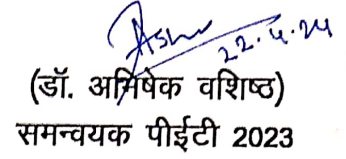 22.4.24
(डॉ. अभिषेक वशिष्ठ)
समन्वयक पीईटी 2023